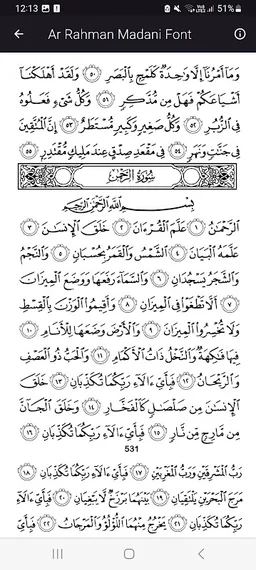 12:13
51%
Ar Rahman Madani Font
وَمَآ أَمْرُنَآ إِلَّا وَٰحِدَةٌ كَلَمْحٍۭ بِٱلْبَصَرِ ٥٠ وَلَقَدْ أَهْلَكْنَآ
أَشْيَاعَكُمْ فَهَلْ مِن مُّدَّكِرٍ ٥١ وَكُلُّ شَىْءٍ فَعَلُوهُ
فِى ٱلزُّبُرِ ٥٢ وَكُلُّ صَغِيرٍ وَكَبِيرٍ مُّسْتَطَرٌ ٥٣ إِنَّ ٱلْمُتَّقِينَ
فِى جَنَّٰتٍ وَنَهَرٍ ٥٤ فِى مَقْعَدِ صِدْقٍ عِندَ مَلِيكٍ مُّقْتَدِرٍۭ ٥٥
سُورَةُ الرَّحْمَٰن
بِسْمِ ٱللَّهِ ٱلرَّحْمَٰنِ ٱلرَّحِيمِ
ٱلرَّحْمَٰنُ ١ عَلَّمَ ٱلْقُرْءَانَ ٢ خَلَقَ ٱلْإِنسَٰنَ ٣
عَلَّمَهُ ٱلْبَيَانَ ٤ ٱلشَّمْسُ وَٱلْقَمَرُ بِحُسْبَانٍ ٥ وَٱلنَّجْمُ
وَٱلشَّجَرُ يَسْجُدَانِ ٦ وَٱلسَّمَآءَ رَفَعَهَا وَوَضَعَ ٱلْمِيزَانَ
٧ أَلَّا تَطْغَوْا۟ فِى ٱلْمِيزَانِ ٨ وَأَقِيمُوا۟ ٱلْوَزْنَ بِٱلْقِسْطِ
وَلَا تُخْسِرُوا۟ ٱلْمِيزَانَ ٩ وَٱلْأَرْضَ وَضَعَهَا لِلْأَنَامِ ١٠
فِيهَا فَٰكِهَةٌ وَٱلنَّخْلُ ذَاتُ ٱلْأَكْمَامِ ١١ وَٱلْحَبُّ ذُو ٱلْعَصْفِ
وَٱلرَّيْحَانُ ١٢ فَبِأَىِّ ءَالَآءِ رَبِّكُمَا تُكَذِّبَانِ ١٣ خَلَقَ
ٱلْإِنسَٰنَ مِن صَلْصَٰلٍ كَٱلْفَخَّارِ ١٤ وَخَلَقَ ٱلْجَآنَّ
مِن مَّارِجٍ مِّن نَّارٍ ١٥ فَبِأَىِّ ءَالَآءِ رَبِّكُمَا تُكَذِّبَانِ ١٦
531
رَبُّ ٱلْمَشْرِقَيْنِ وَرَبُّ ٱلْمَغْرِبَيْنِ ١٧ فَبِأَىِّ ءَالَآءِ رَبِّكُمَا تُكَذِّبَانِ ١٨
مَرَجَ ٱلْبَحْرَيْنِ يَلْتَقِيَانِ ١٩ بَيْنَهُمَا بَرْزَخٌ لَّا يَبْغِيَانِ ٢٠ فَبِأَىِّ ءَالَآءِ
رَبِّكُمَا تُكَذِّبَانِ ٢١ يَخْرُجُ مِنْهُمَا ٱللُّؤْلُؤُ وَٱلْمَرْجَانُ ٢٢ فَبِأَىِّ